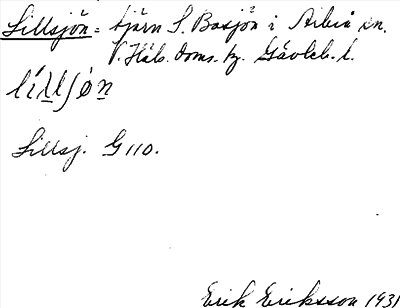 Lillsjön = tjärn S. Basjön i Arbrå sn.
V. Häls. doms. hj. Gävleb. l.
lílsjọ̀n
Lillsj. G 110.
Erik Eriksson 1931